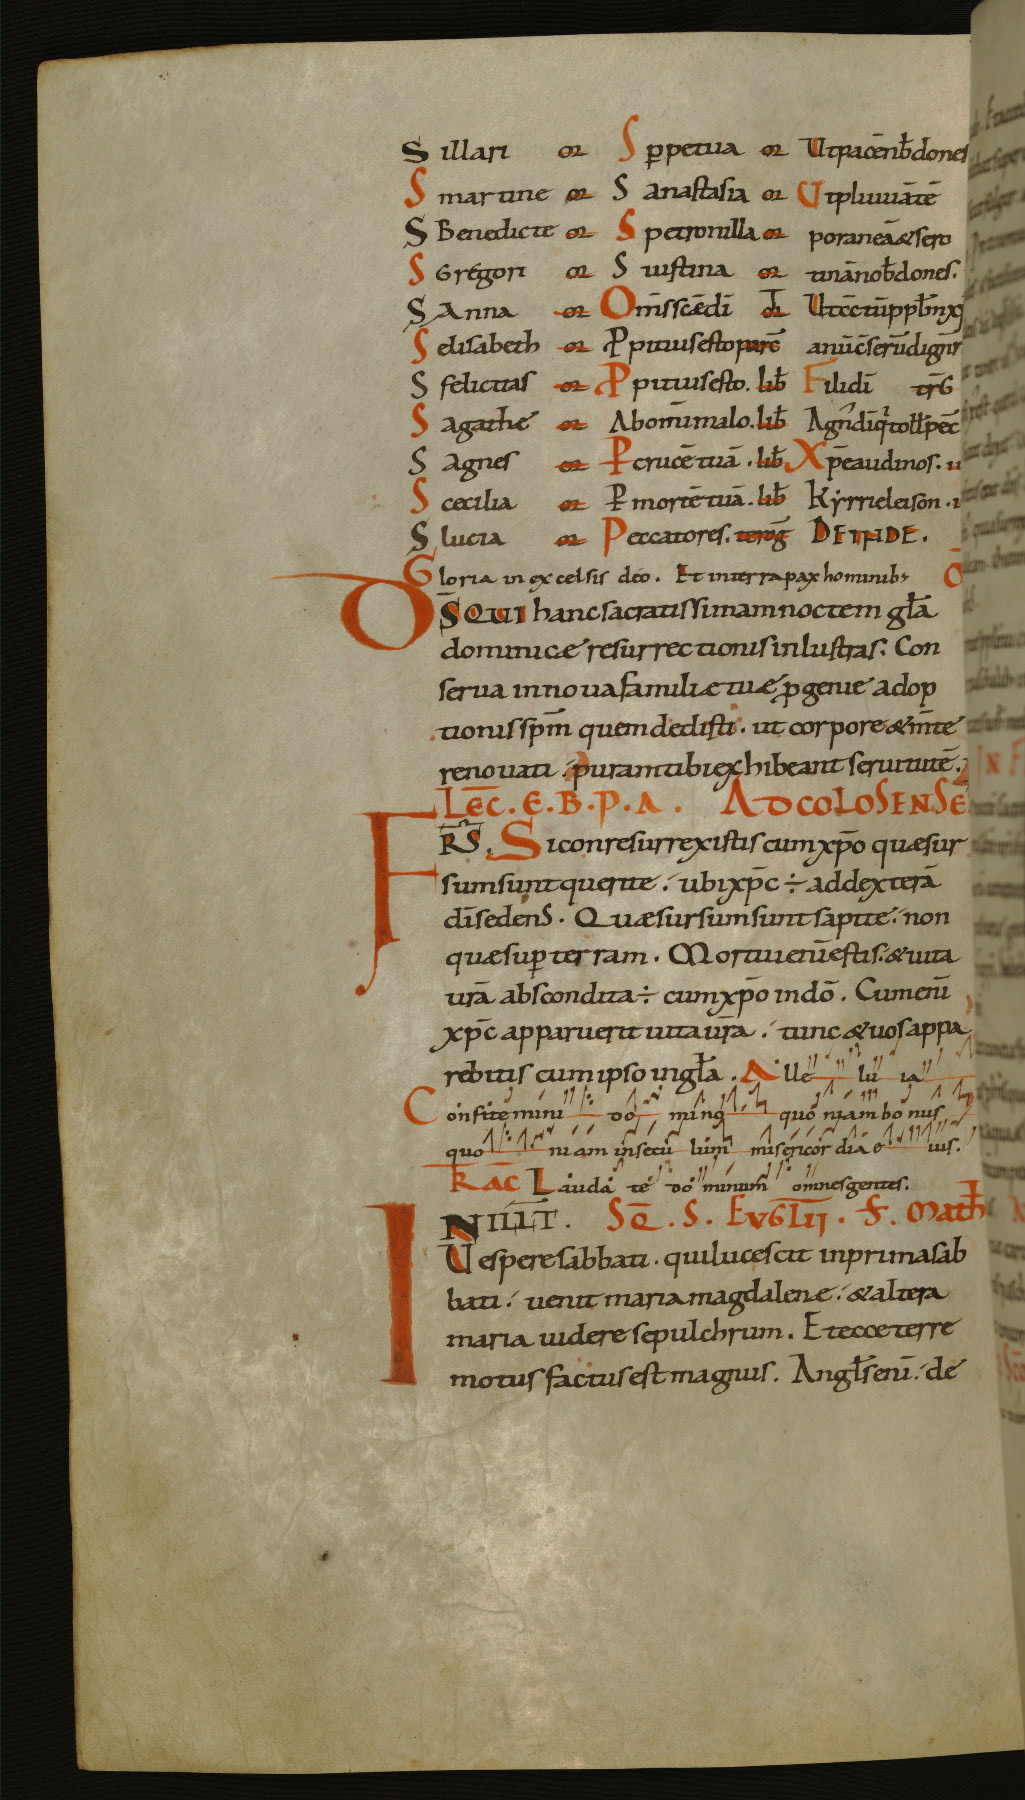 S illari or S ꝑpetua or Ut pacē nob̄ dones
S martine or S anastasia or Ut pluuiā tē
S Benedicte or S petronilla or poraneā & sero
S Gregori or S iustina or tinā nob̄ dones.
S Anna or Om̄s sc̄e dī
S elisabeth or Ppitius esto parc̄
S felicitas or Ppitius esto. lib̄ Fili dī
S agathe or Ab omī malo. lib̄
S agnes or P crucē tuā. lib̄ Xp̄e audi nos.
S cecilia or P mortē tuā. lib̄ Kyrrieleison.
S lucia or Peccatores. DEINDE.
Gloria in excelsis deo. Et in terra pax hominib;
D S̄ QUI hanc sacratissimam noctem gl̄a
dominicæ resurrectionis inlustras. Con
serua in noua familiæ tuæ ꝓgenie adop
tionis sp̄m quem dedisti. ut corpore & m̄te
renouati. puram tibi exhibeant seruitutē.
LEC̄. E. B. P. A. AD COLOSENSE
F R̄S. Si conresurrexistis cum xp̄o quæ sur
sum sunt querite. ubi xp̄c ÷ ad dexterā
dī sedens. Quæ sursum sunt sapite. non
quæ suꝑ terram. Mortui enī estis. & uita
urā abscondita ÷ cum xp̄o in dō. Cum enī
xp̄c apparuerit uita ur̄a. tunc & uos appa
rebitis cum ipso in gl̄a. Alle lu ia
Confitemini do mino quoniam bonus
quo niam in secu lum misericordia e ius.
TRAC̄ Laudate dominum omnes gentes.
IN ILLT. SQ̄. S. EVGLII. S. Math
Uespere sabbati. qui lucescit in prima sab
bati. uenit maria magdalene. & altera
maria uidere sepulchrum. Et ecce terre
motus factus est magnus. Angl̄s enī. de